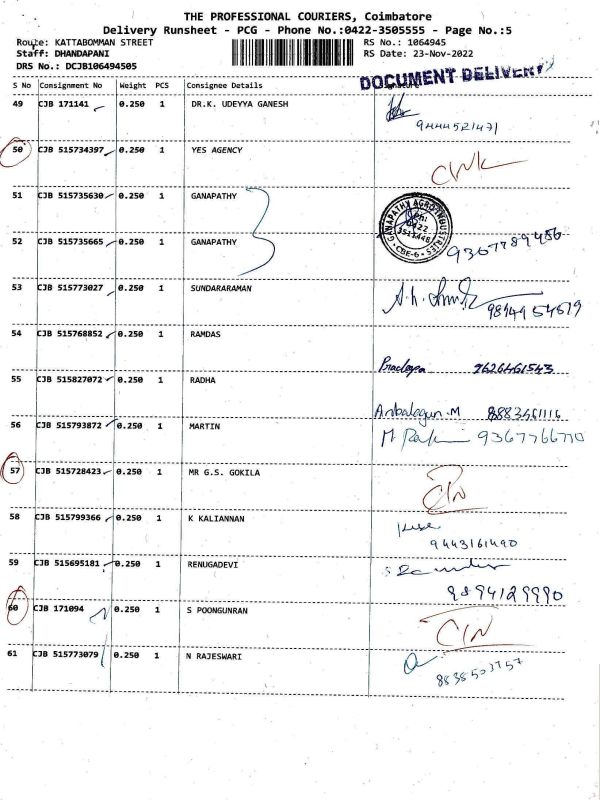 THE PROFESSIONAL COURIERS, Coimbatore
Delivery Runsheet - PCG - Phone No.:0422-3505555 - Page No.:5
Route: KATTABOMMAN STREET RS No.: 1064945
Staff: DHANDAPANI RS Date: 23-Nov-2022
DRS No.: DCJB106494505
DOCUMENT DELIVERY
S No Consignment No Weight PCS Consignee Details
49 CJB 171141 0.250 1 DR.K. UDEYYA GANESH
9444521471
50 CJB 515734397 0.250 1 YES AGENCY
51 CJB 515735630 0.250 1 GANAPATHY
GANAPATHY AGRO INDUSTRIES
CBE-6
52 CJB 515735665 0.250 1 GANAPATHY
9367789456
53 CJB 515773027 0.250 1 SUNDARARAMAN
54 CJB 515768852 0.250 1 RAMDAS
9626461543
55 CJB 515827072 0.250 1 RADHA
Anbalagan.M 8883461116
56 CJB 515793872 0.250 1 MARTIN
9367766770
57 CJB 515728423 0.250 1 MR G.S. GOKILA
CIN
58 CJB 515799366 0.250 1 K KALIANNAN
9443161490
59 CJB 515695181 0.250 1 RENUGADEVI
9894129990
60 CJB 171094 0.250 1 S POONGUNRAN
CIN
61 CJB 515773079 0.250 1 N RAJESWARI
8838503757